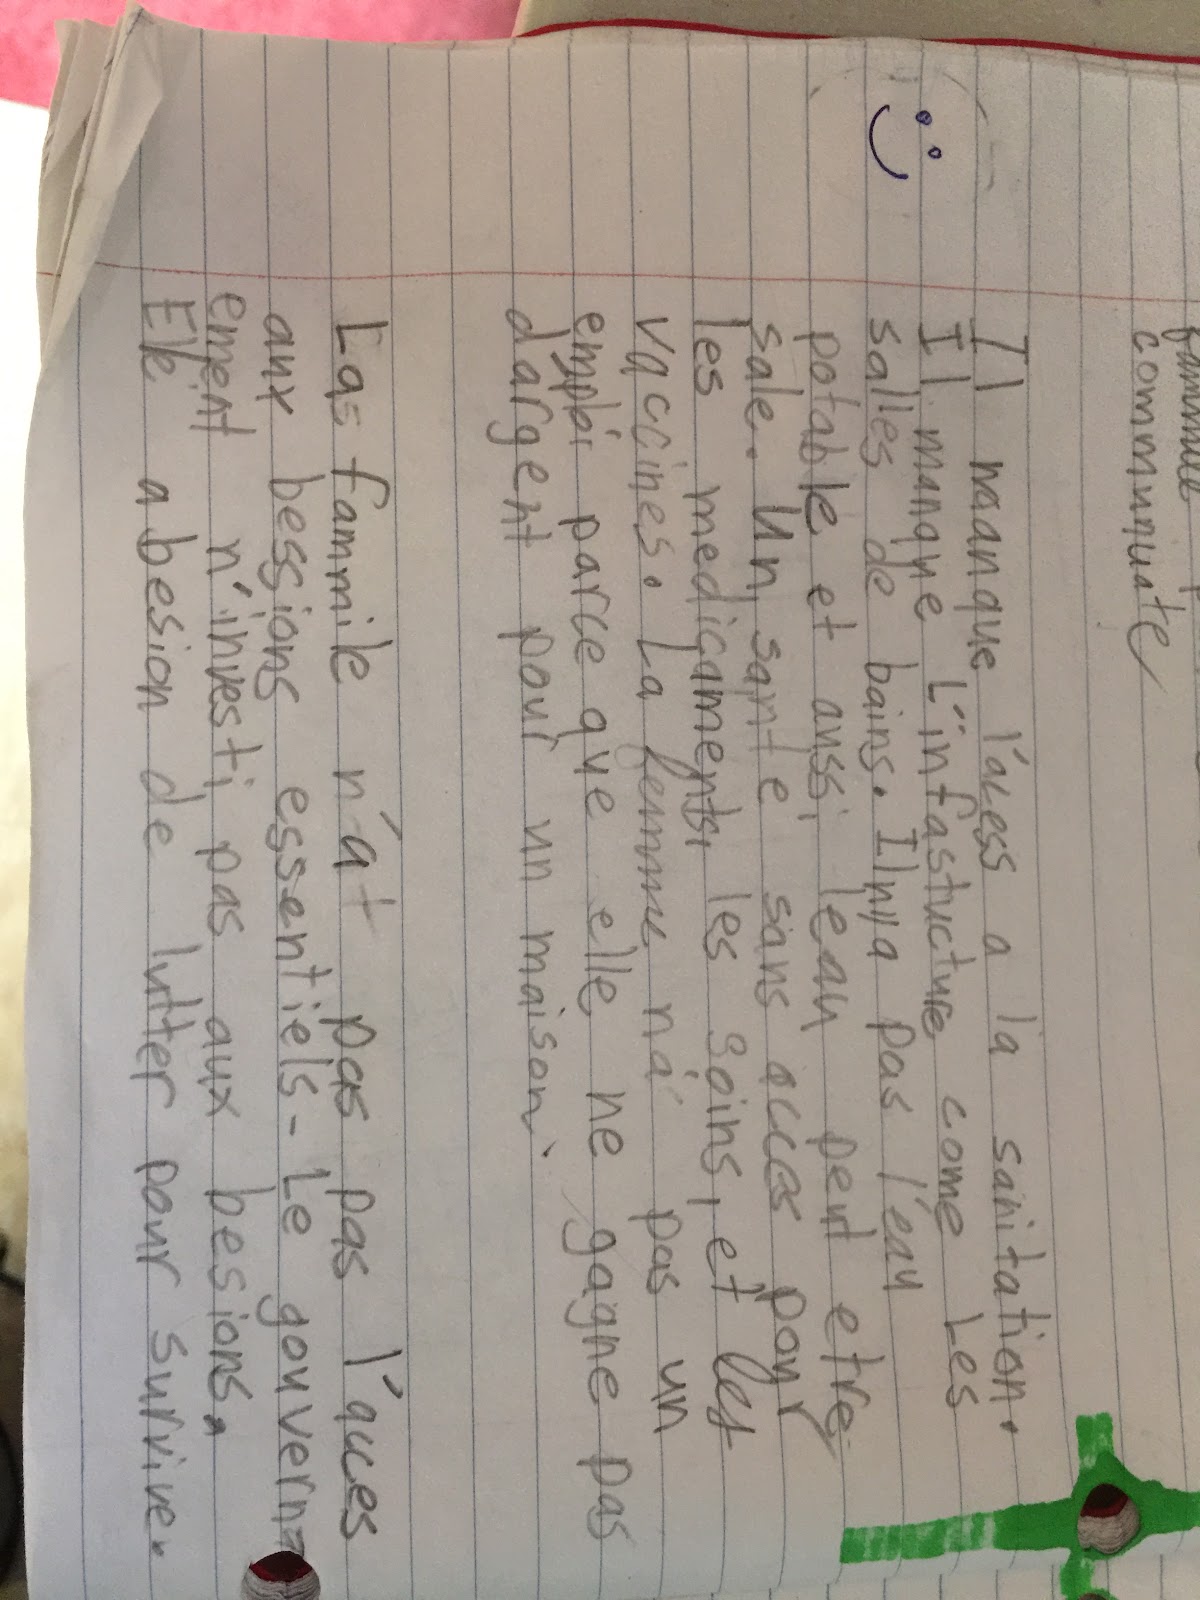 fammile
communuate
Il maanque l'aless a la sanitation.
Il manque L"infastucture come Les
salles de bains. Iln'ya pas l'eau
potable et aussi leau peut etre
sale. Un sante sans acces pour
les medicaments, les soins, et les
vaccines. La femme na' pas un
emploi parce que elle ne gagne pas
dargent pour un maison.
Las fammile n'at pas pas l'acces
aux bessions essentiels- Le govern=
ement n'investi pas aux besions.
Elle a besion de lutter pour survive.